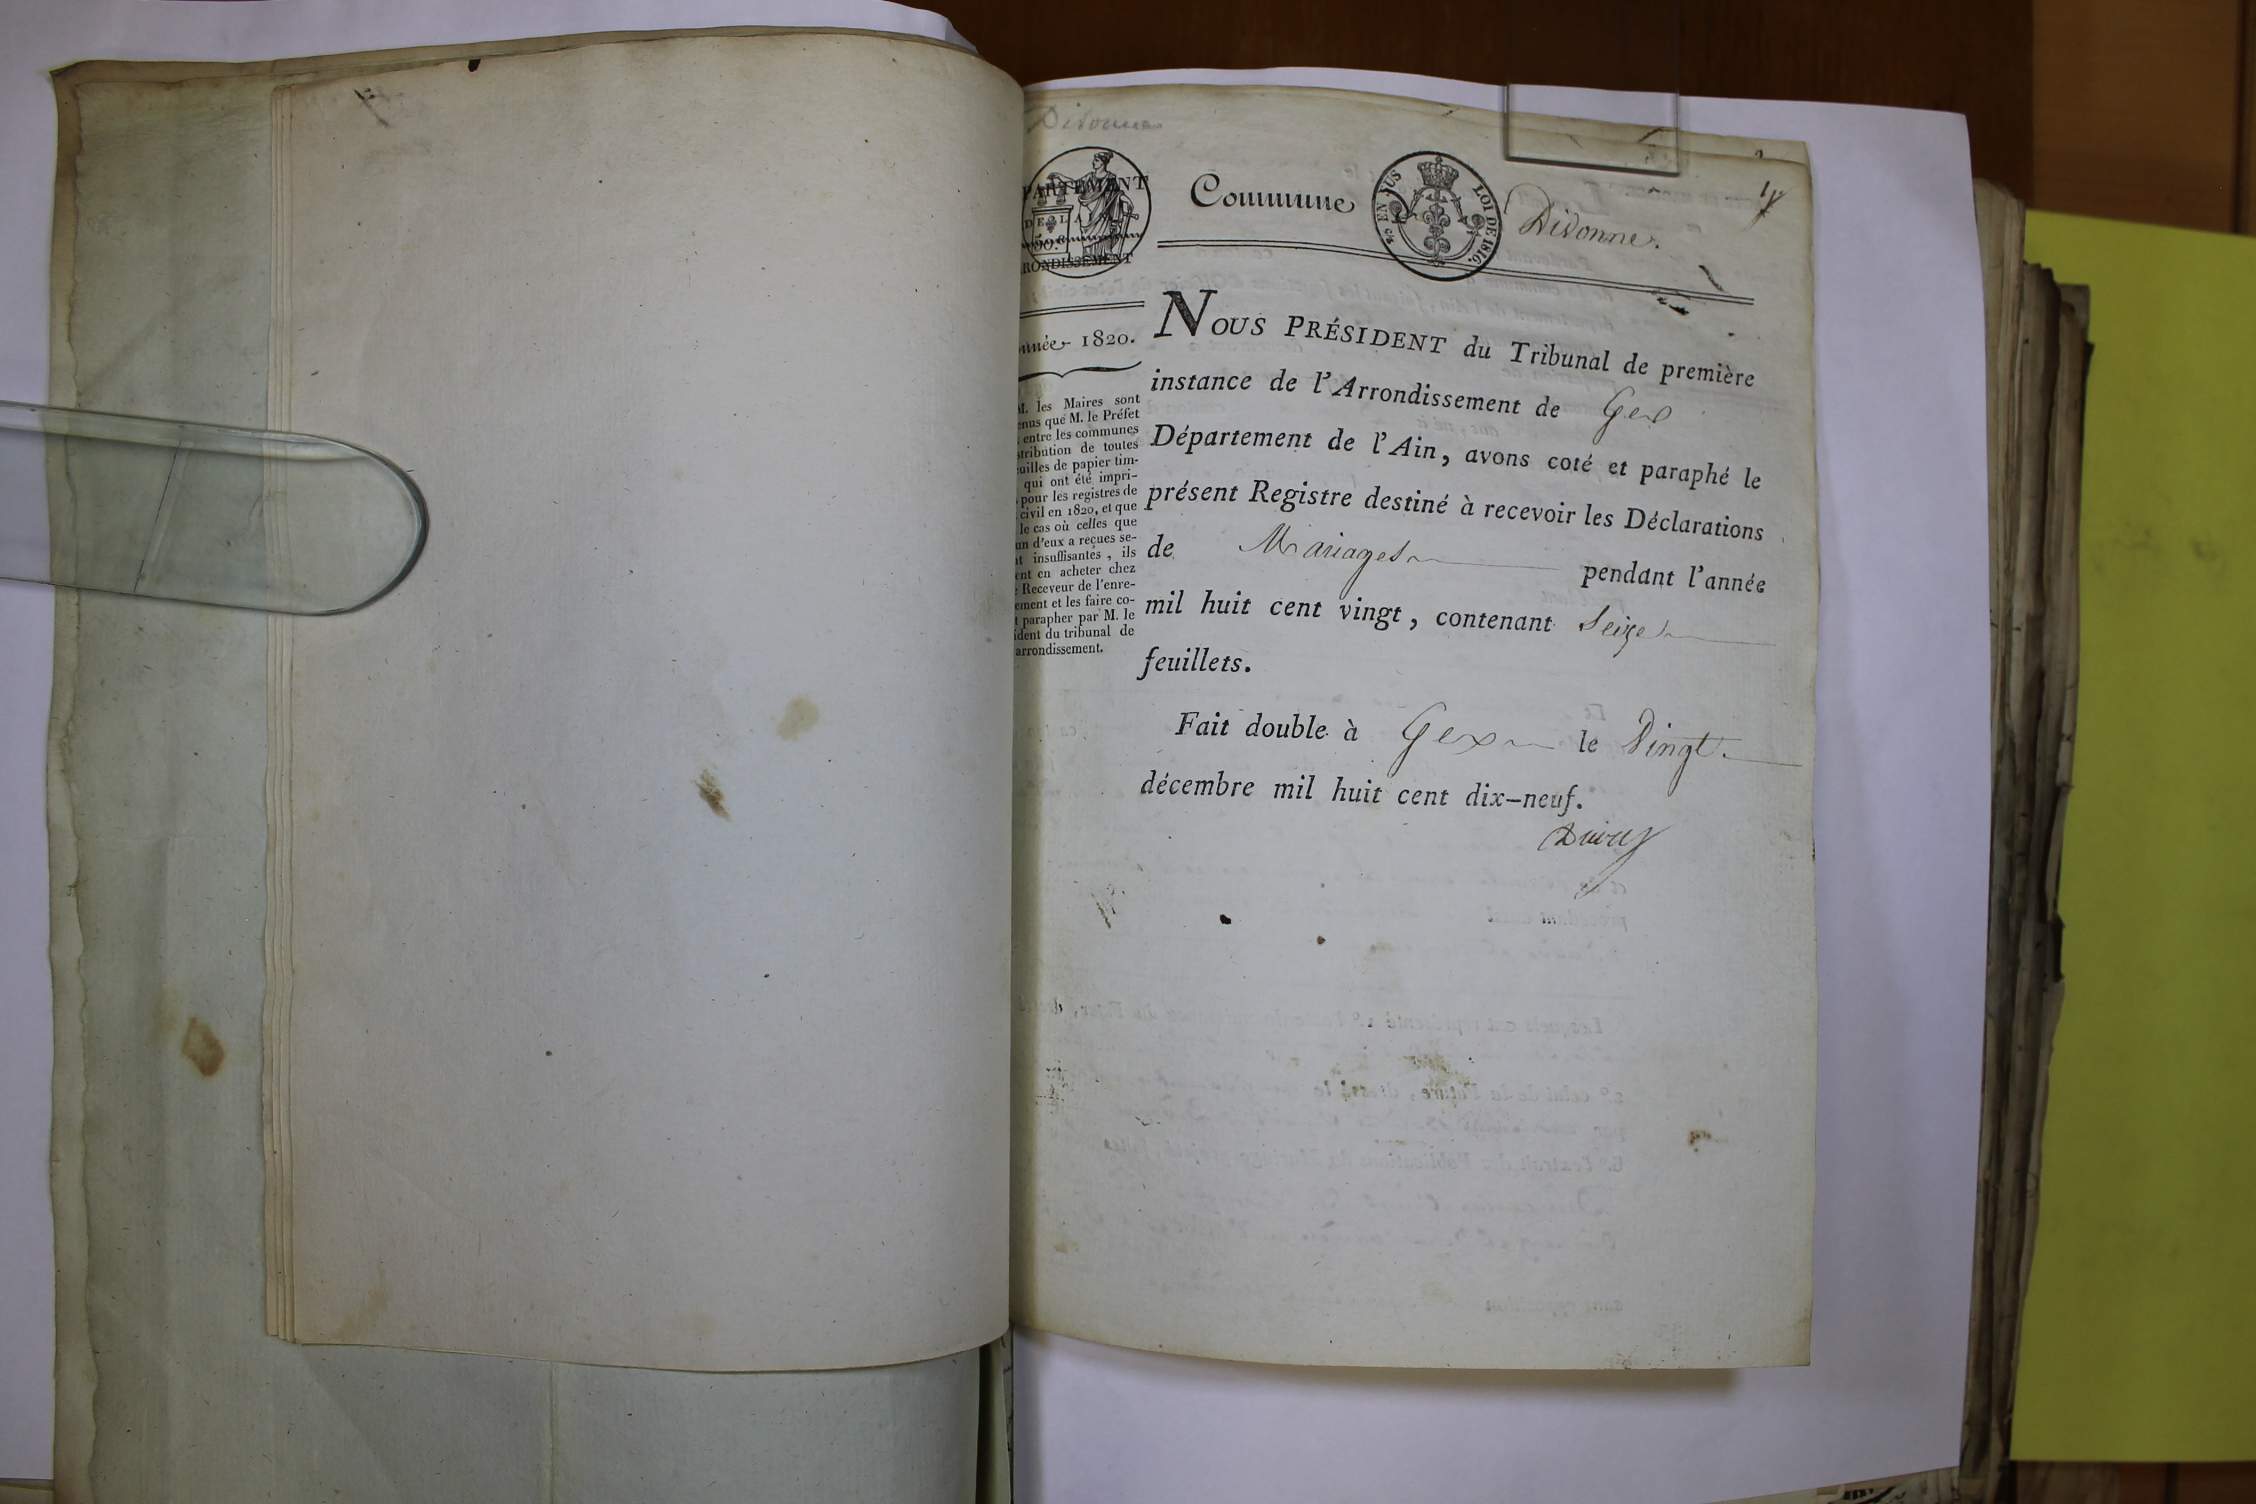 Divonne
PARTEMENT
DE LA
50 c
RONDISSEMENT
Commune
EN SUS
LOI DE 1816.
Divonne.
nnée 1820.
M. les Maires sont
enus que M. le Préfet
entre les communes
stribution de toutes
uilles de papier tim-
qui ont été impri-
pour les registres de
civil en 1820, et que
le cas où celles que
un d'eux a reçues se-
nt insuffisantes, ils
ent en acheter chez
e Receveur de l'enre-
ement et les faire co-
t parapher par M. le
ident du tribunal de
arrondissement.
NOUS PRÉSIDENT du Tribunal de première
instance de l'Arrondissement de Gex
Département de l'Ain, avons coté et paraphé le
présent Registre destiné à recevoir les Déclarations
de Mariages pendant l'année
mil huit cent vingt, contenant Seize
feuillets.
Fait double à Gex le Vingt
décembre mil huit cent dix-neuf.